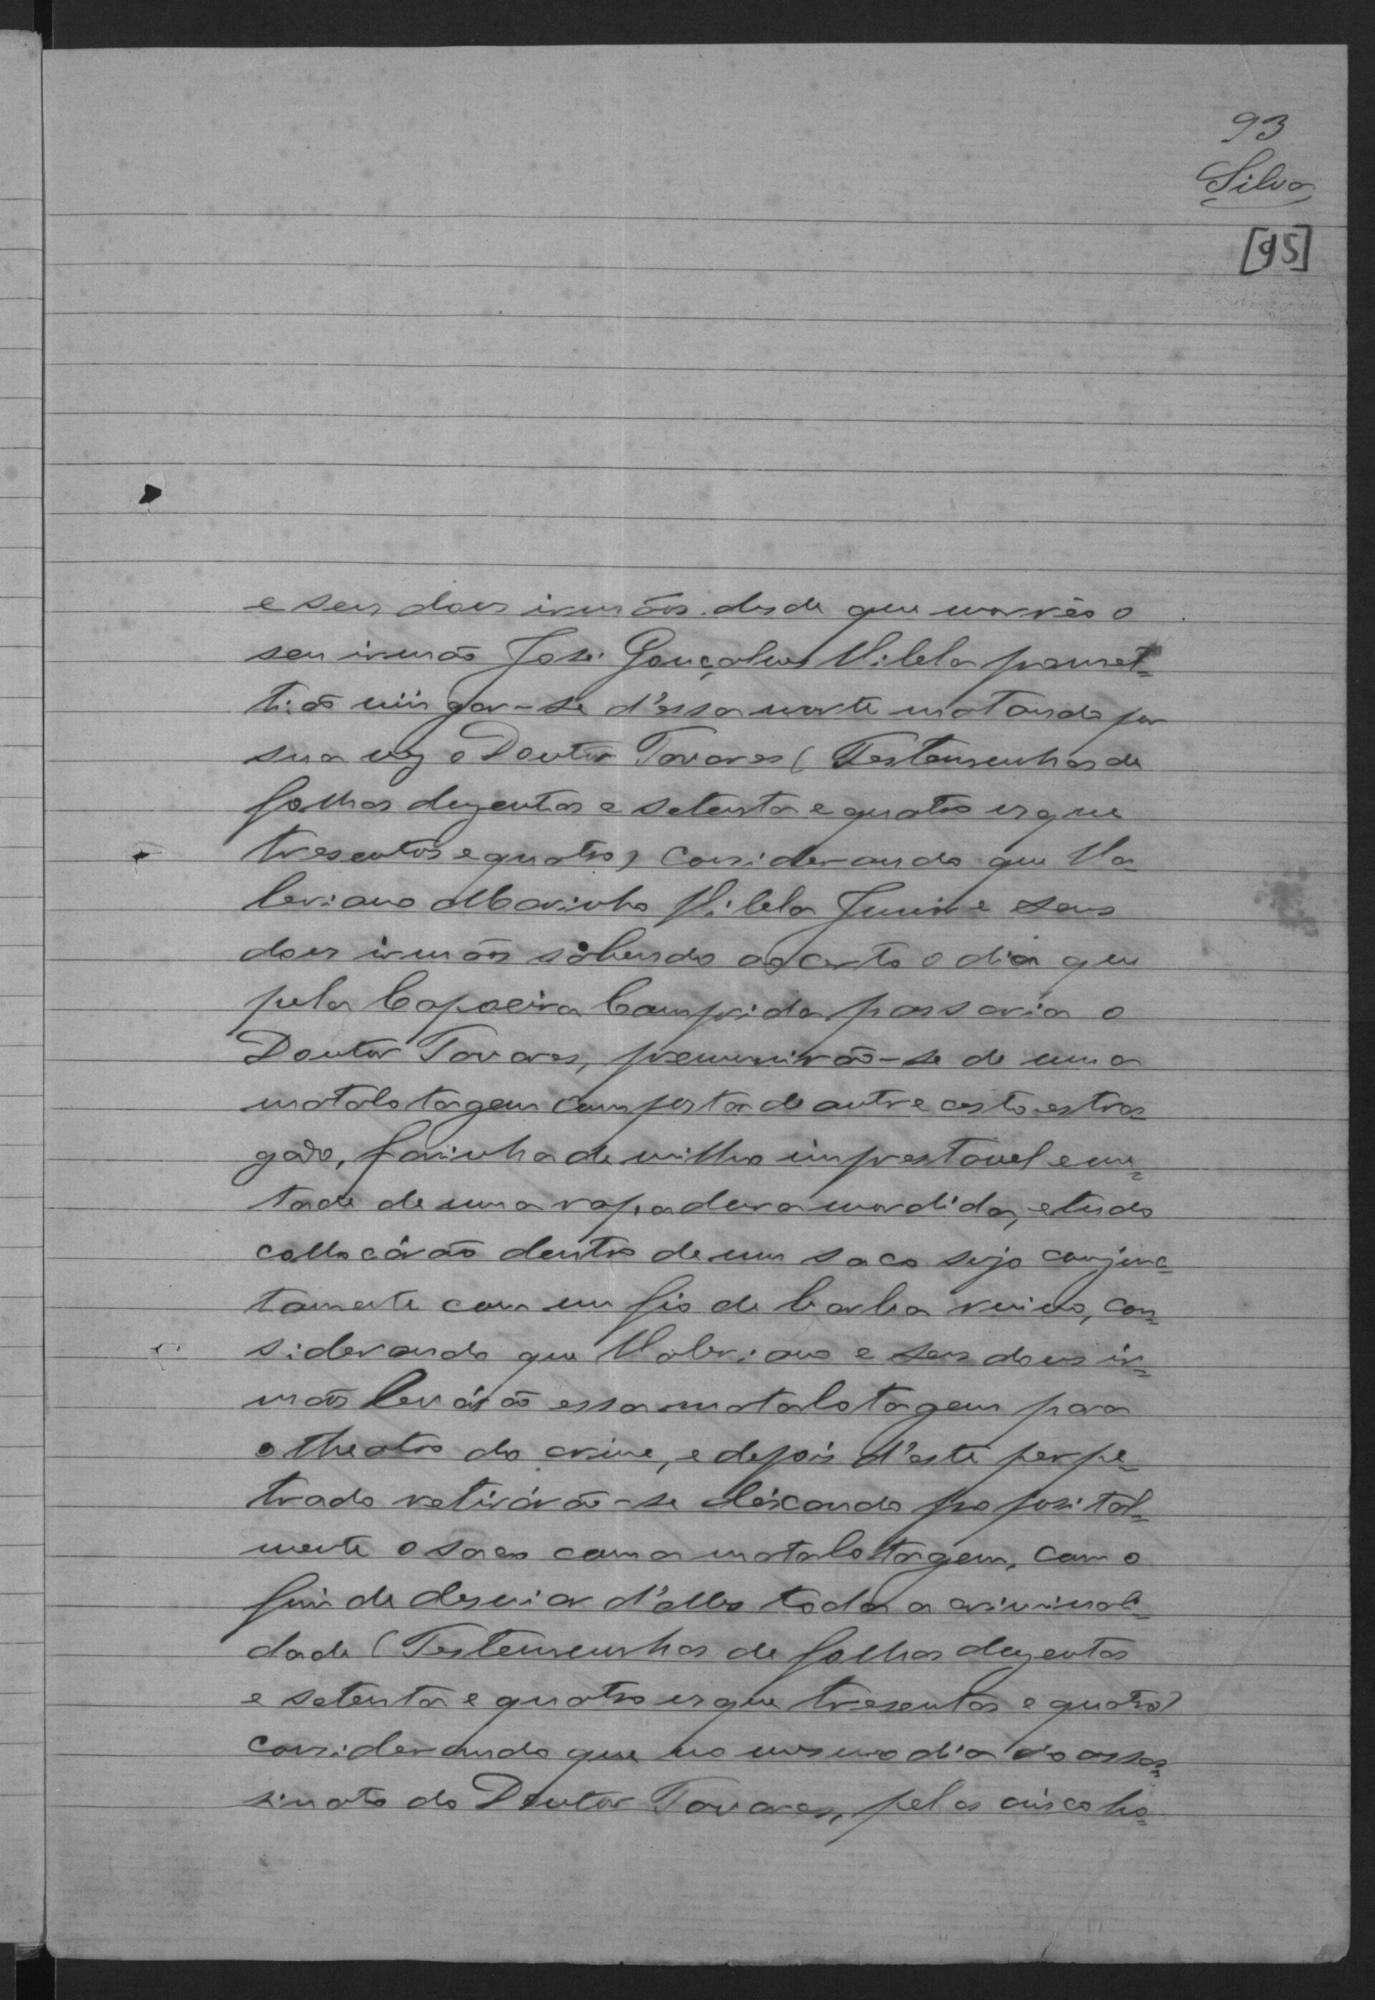 93
Silva
[95]
e seus dous irmãos desde que morrêo o
seu irmão José Gonçalves Vilela promet=
tião vingar-se d'essa morte matando por
sua vez o Doutor Tavares (Testemunhas de
folhas duzentas e setenta e quatro usque
tresentos e quatro) Considerando que Va=
leriano Marinho Vilela Junior e seus
dous irmãos sabendo ao certo o dia que
pela Capoeira Comprida passaria o
Doutor Tavares, premunirão-se de uma
matalotagem composta de
gado, farinha de milho imprestavel e me=
tade de uma rapadura mordida, e tudo
collocárão dentro de um saco sujo conjunc=
tamente com um fio de barba ruivo, con=
siderando que Valeriano e seus dous ir=
mãos levárão essa matalotagem para
o theatro do crime, e depois d'este perpe=
trado retirárão-se deixando proposital=
mente o saco com a matalotagem, com o
fim de desviar d'elles toda a criminali=
dade (Testemunhas de folhas duzentas
e setenta e quatro usque tresentos e quatro)
considerando que no mesmo dia do assas=
sinato do Doutor Tavares, pelas cinco ho=